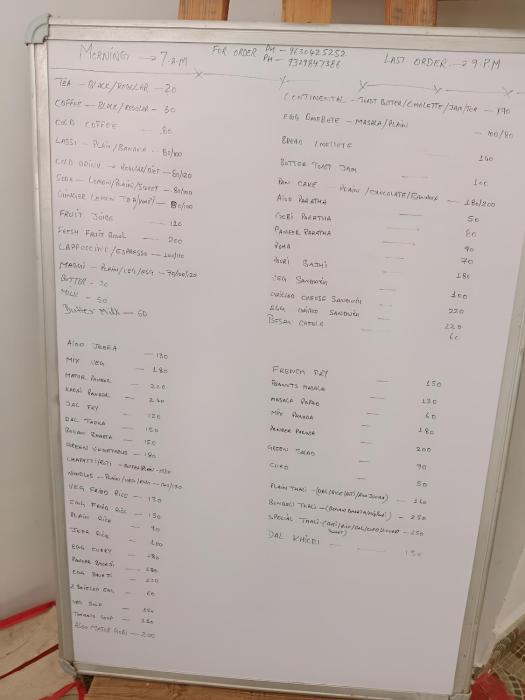 MORNING → 7 A.M
FOR ORDER PH - 9630425252
PH - 9329847388
LAST ORDER → 9 P.M
TEA - BLACK/REGULAR - 20
COFFEE - BLACK/REGULAR - 30
COLD COFFEE - 80
LASSI - PLAIN/BANANA - 80/100
COLD DRINK → REGULAR/DIET - 60/120
SODA - LEMON/PLAIN/SWEET - 80/100
GINGER LEMON TEA
FRUIT JUICE - 120
FRESH FRUIT BOWL - 200
CAPPUCCINO/ESPRESSO
MAGGI - PLAIN/VEG/EGG - 70/90/120
BUTTER - 30
MILK - 60
Butter Milk - 60
CONTINENTAL - TOAST BUTTER/OMELETTE/JAM/TEA - 190
EGG OMELETE - MASALA/PLAIN - 100/80
BREAD OMELETE - 140
BUTTER TOAST JAM - 100
PAN CAKE - PLAIN/CHOCOLATE/BANANA - 180/200
ALOO PARATHA - 50
GOBI PARATHA - 80
PANEER PARATHA - 90
POHA - 70
POORI BAJHI - 180
VEG SANDWICH - 100
GRILLED CHEESE SANDWICH - 220
EGG GRILLED SANDWICH - 220
BESAN CHEELA - 60
ALOO JEERA - 130
MIX VEG - 180
MATAR PANEER - 220
KADAI PANEER - 240
DAL FRY - 120
DAL TADKA - 150
BAIGAN BHARTA - 150
GREEN VEGETABLE - 180
CHAPATTI/ROTI
NOODLES - PLAIN/VEG/EGG
VEG FRIED RICE - 130
EGG FRIED RICE - 150
PLAIN RICE - 90
JEERA RICE - 100
EGG CURRY - 180
PANEER BHURJI - 280
EGG BHURJI - 120
2 BOILED EGG - 60
VEG SOUP - 150
TOMATO SOUP - 150
ALOO MATOR GOBI - 200
FRENCH FRY - 150
PEANUTS MASALA - 130
MASALA PAPAD - 60
MIX PAKODA - 180
PANEER PAKODA - 200
GREEN SALAD - 90
CURD - 50
PLAIN THALI - 160
BENGALI THALI - 250
SPECIAL THALI - 250
DAL KHICDI - 150